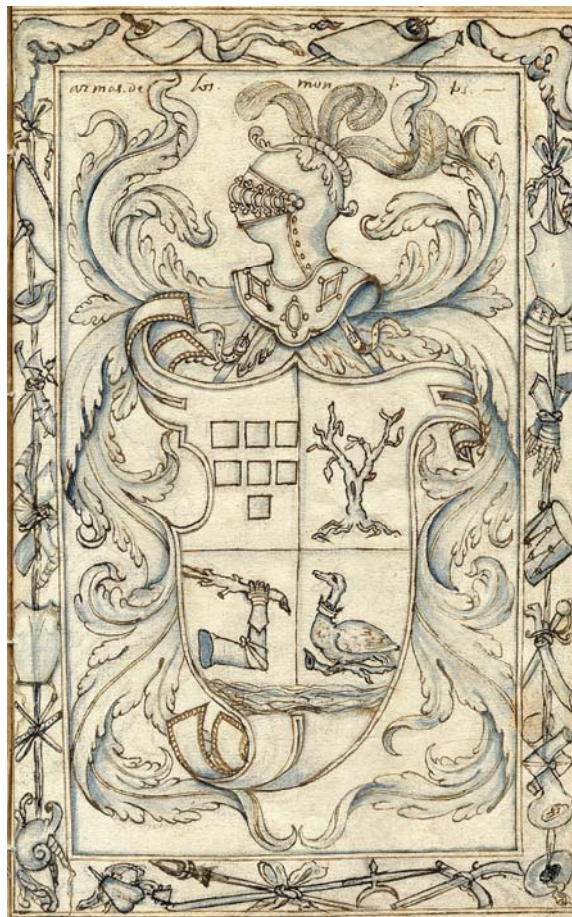 armas. de los. mon t